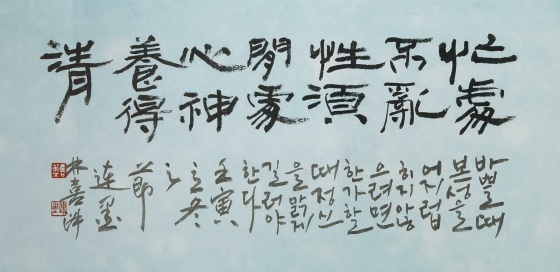 忙處
不亂
性須
閒處
心神
養得
清
바쁠때
본성을
어지럽
히지않
으려면
한가할
때정신
을맑게
길러야
한다
壬寅
立冬
之
節
連墨
林喜